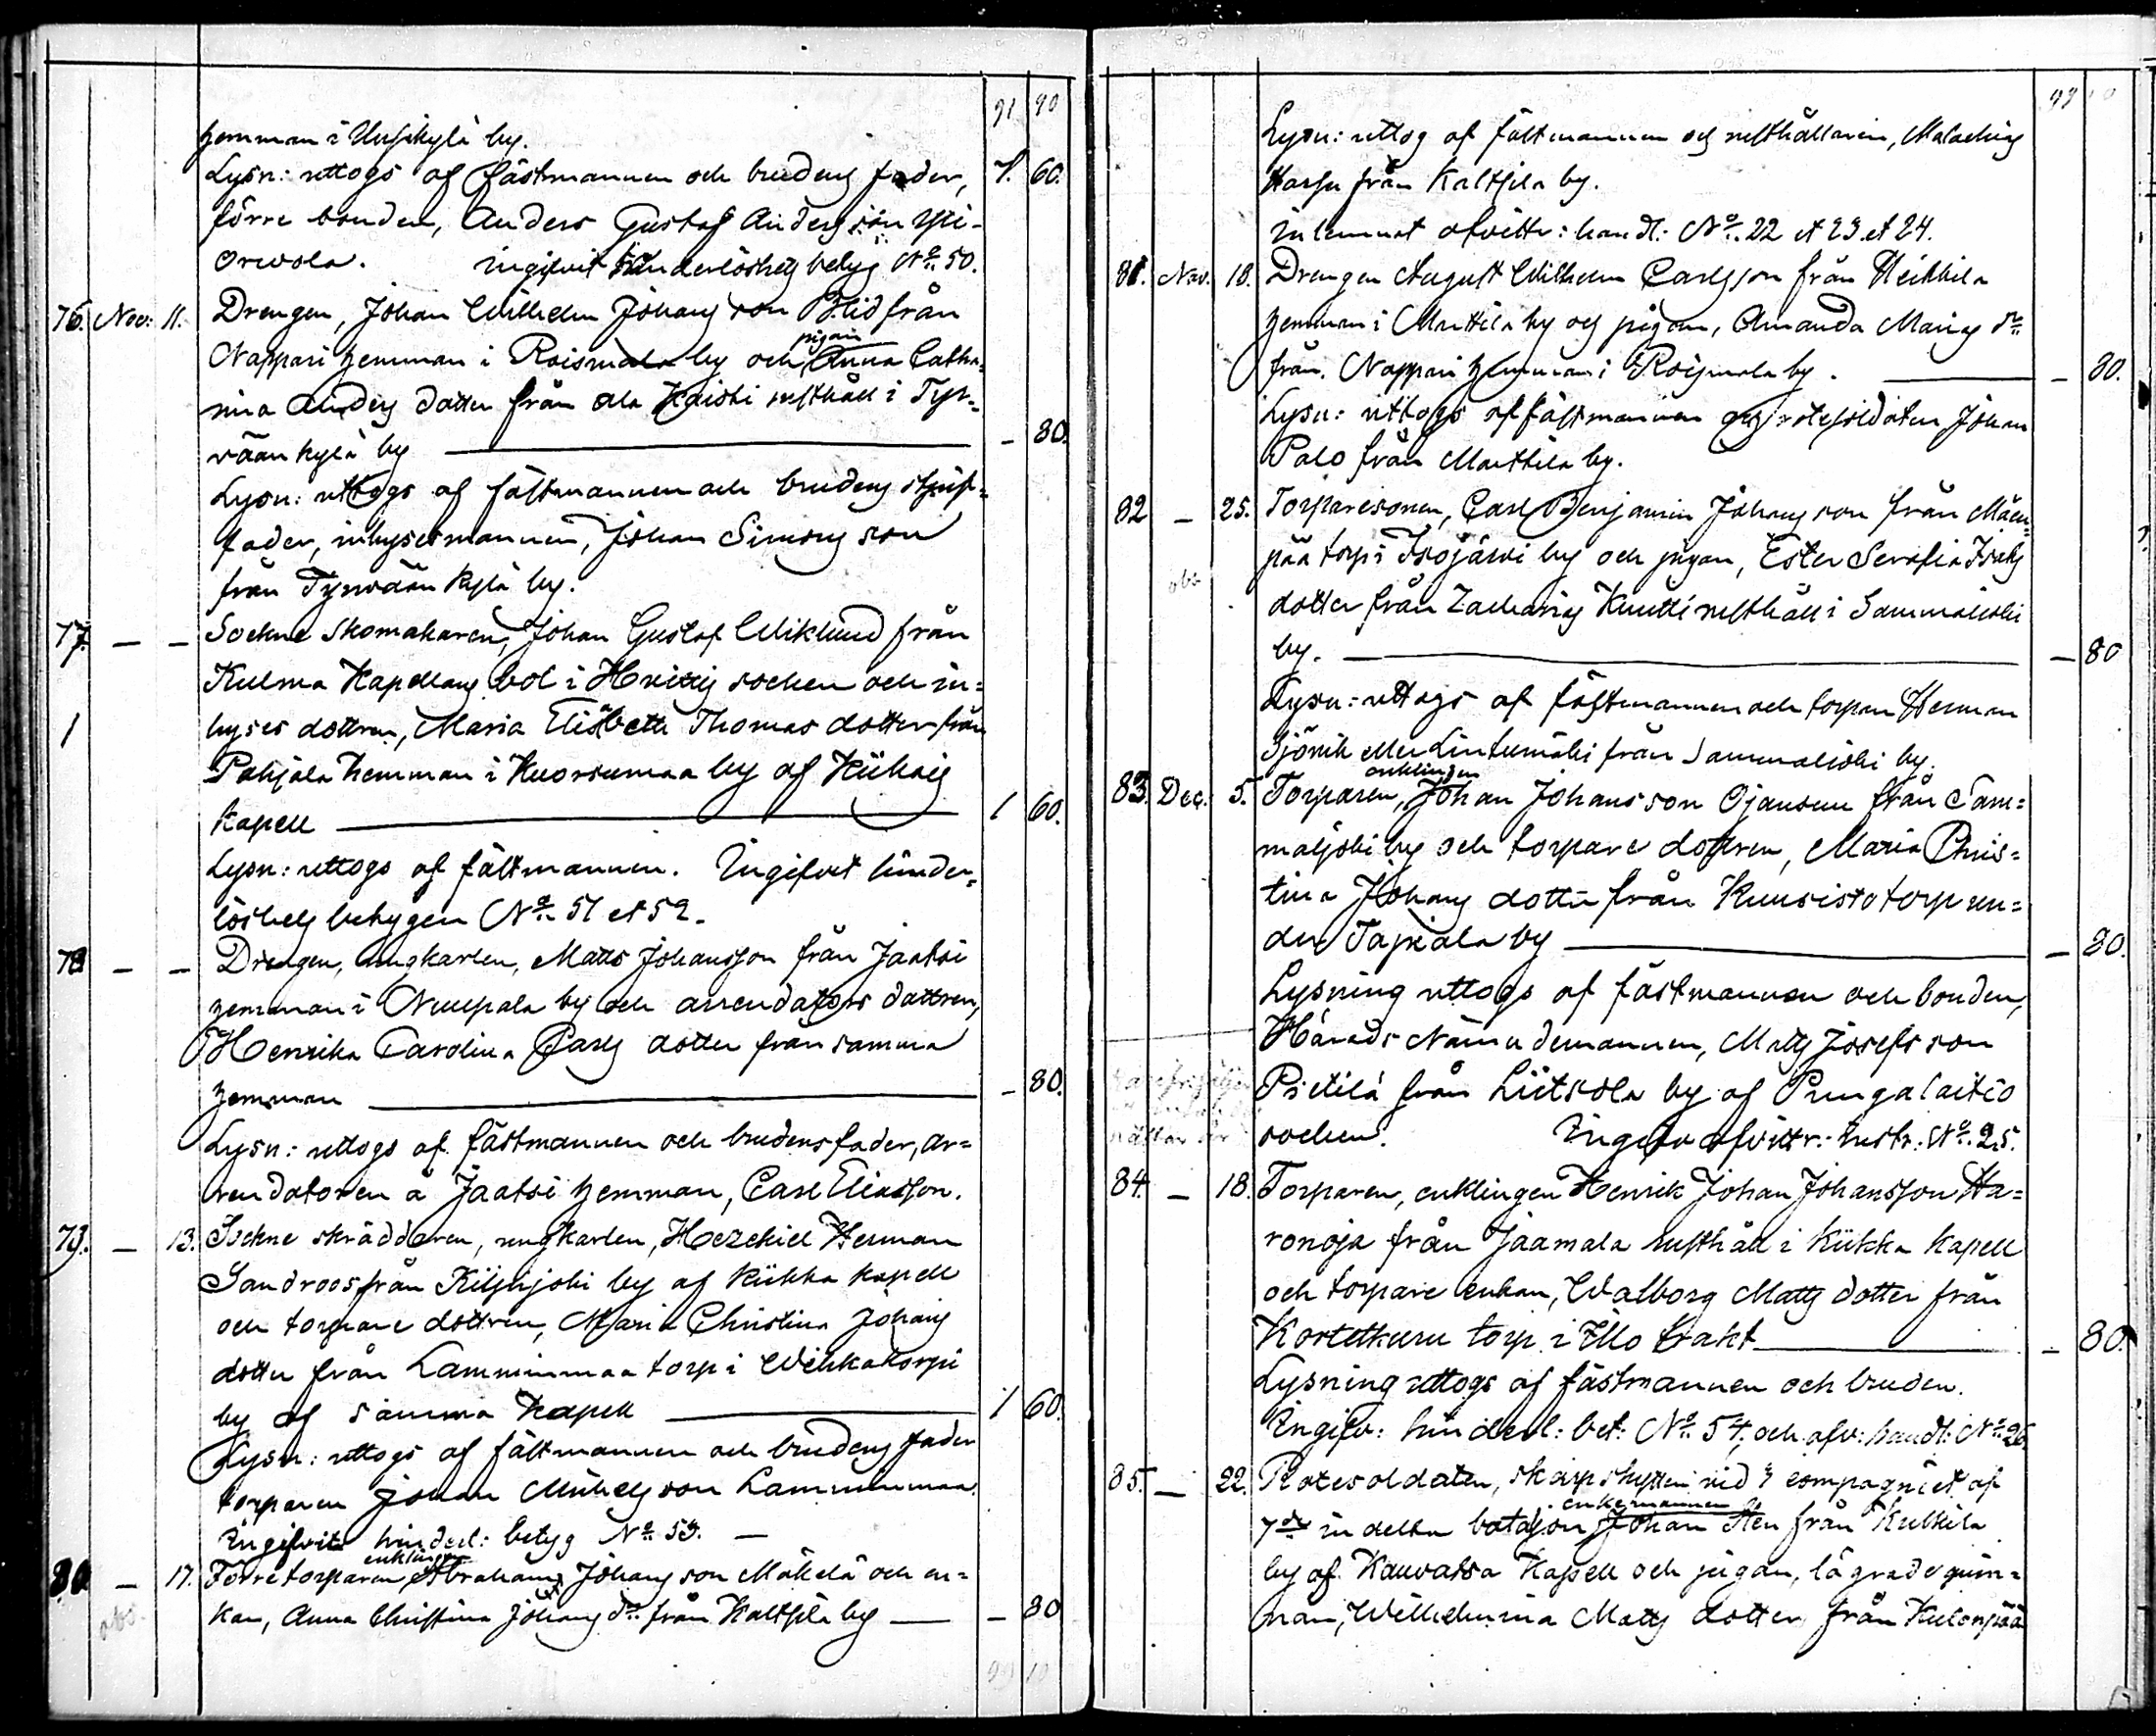 91 90
hemman i by.
Lysn: uttogs af fästmannen och brudens fader, 1. 60.
förre bonden, Anders Gustaf Andersson Ypi-
Orvola. ingifvit hinderlöshets betyg No. 50.
76. Nov: 11. Drengen, Johan Wilhelm Johansson Blid från
pigan
Nappari hemman i Roismala by och Anna Catha-
rina Anders dotter från Ala Kaishi rusthåll i Tyr-
väänkylä by — 80.
Lysn: uttogs af fästmannen och brudens styf-
fader, inhysesmannen, Johan Simons son
från Tyrväänkylä by.
77. — — Sockne skomakaren, Johan Gustaf Wiklund från
Kulma Kapellans bol i Hvittis socken och in-
hyses dottren, Maria Elisbeth Thomas dotter från
Pohjala hemman i Kuorsumaa by af Kiikois
Kapell 1 60.
Lysn: uttogs af fästmannen. Ingifvit hinder-
löshets betygen No. 51 et 52.
78 — — Drengen, ungkarlen, Matts Johansson från Jaatsi
hemman i Nuupala by och arrendators dottren,
Henrika Carolina Carls dotter från samma
hemman — 80.
Lysn: uttogs af fästmannen och brudens fader, ar-
rendatoren å Jaatsi hemman, Carl Eliasson.
79. — 13. Sockne skräddaren, ungkarlen, Hezekiel Herman
Sandroos från Kiljujoki by af Kiikka kapell
och torpare dottren, Maria Christina Johans
dotter från Lamminmaa torp i Wehkakorpi
by af samma Kapell 1 60.
Lysn: uttogs af fästmannen och brudens fader
torparen Johan Michelsson Lamminmaa.
Ingifvit hinderl: betyg No. 53. —
enklingen
80. — 17. Förre torparen, Abraham Johansson Mäkelä och en-
kan, Anna Christina Johans dr. från Kaltsila by — — 80
Lysn: uttog af fästmannen och rusthållaren, Malachias
från Kaltsila by.
inlemnat afvittr: handl: No. 22 et 23 et 24.
81. Nov. 18. Drengen August Wilhelm Carlsson från Heikkilä
hemman i Marttila by och pigan, Amanda Marias dr.
från Nappari hemman i Roismala by. — 80.
Lysn: uttogs af fästmannen och rotesoldaten Johan
Palo från Marttila by.
82 — 25. Torparesonen, Carl Benjamin Johansson från Mäen-
pää torp i Isojärvi by och pigan, Ester Serafia Isaks
obs
dotter från Zacharias Knutti rusthåll i Sammaljoki
by. — 80
Lysn: uttogs af fästmannen och torparn Herman
Sjövik eller Lintumäki från Sammaljoki by.
enklingen
83. Dec. 5. Torparen, Johan Johansson Ojansuu från Sam-
maljoki by och torpare dottren, Maria Chris-
tina Johans dotter från Kuusisto torp un-
der Tapiala by — 80.
Lysning uttogs af fästmannen och bonden,
Härads Nämndemannen, Matts Josefsson
Pietilä från Liitsola by af Pungalaitio
socken. Ingifv afvittr: Instr: No. 25.
84. — 18. Torparen, enklingen Henrik Johan Johansson Ha-
ronoja från Jaamala rusthåll i Kiikka Kapell
och torpare enkan, Walborg Matts dotter från
Kortetkuru torp i Illo trakt — 80.
Lysning uttogs af fästmannen och bruden.
Ingifv: hinderl: bet: No. 54, och afv: handl: No. 26.
85. — 22. Rotesoldaten, skarpskytten vid 3 compagniet af
enkemannen
7de indelta bataljon Johan Sten från Kulkkila
by af Kauvatsa Kapell och pigan, lägradeqvin-
nan, Wilhelmina Matts dotter från Kulonpää